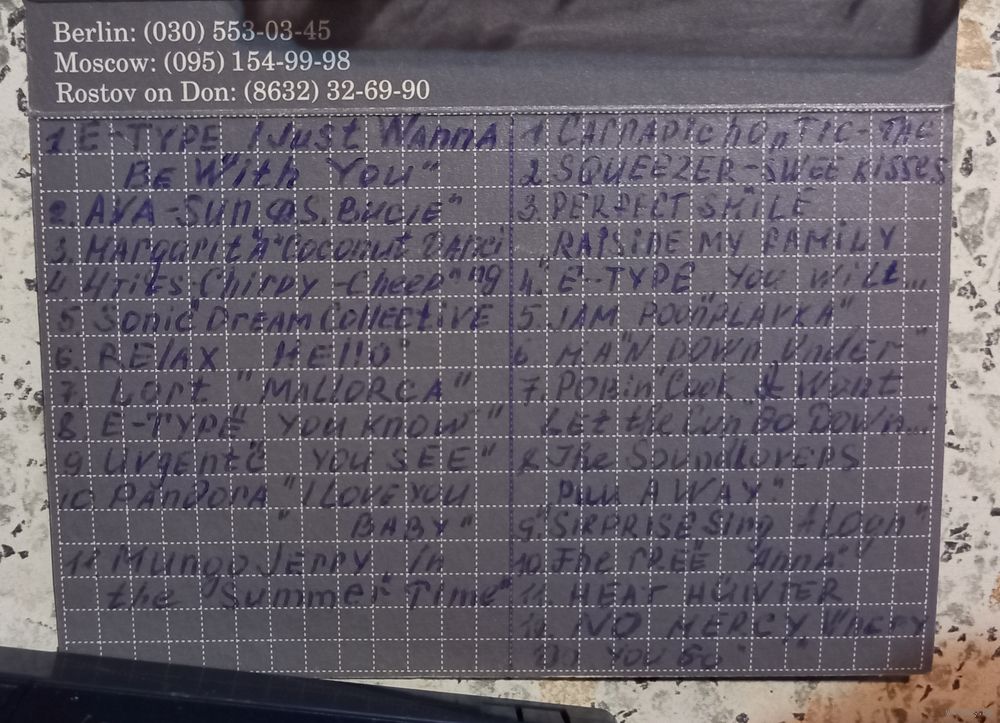 Berlin: (030) 553-03-45
Moscow: (095) 154-99-98
Rostov on Don: (8632) 32-69-90
1. E-TYPE I Just WANNA
BE With YOU"
2. AVA - SUN
3. MArgArit "A" Coconut
4. Chirpy - Cheep"
5. Sonic DREAM COllECTIVE
6. RElAX HEllO"
7. LOrt "MAllORCA"
8 E-TYPE" YOU KNOW"
9 Urgent" C YOU SEE"
10 PANDORA "I LOVE YOU
" BABY"
11 Mungo JERRY In
the "Summer Time"
1. TIC-TAC
2. SQUEEZER - SWEE KISSES
3. PERFECT SMILE
RAISINE MY FAMILY
4. E-TYPE YOU WILL...
5. JAM
6 MAN DOWN Under"
7. Cook & Want
LEt the Cun Go DOWn..."
8. The SoundLOVERS
AWAY"
9. SIRPRISE Sing
10. The FREE "Anna"
11. HEAT HUNTER
NO MERCY
DO YOU GO"